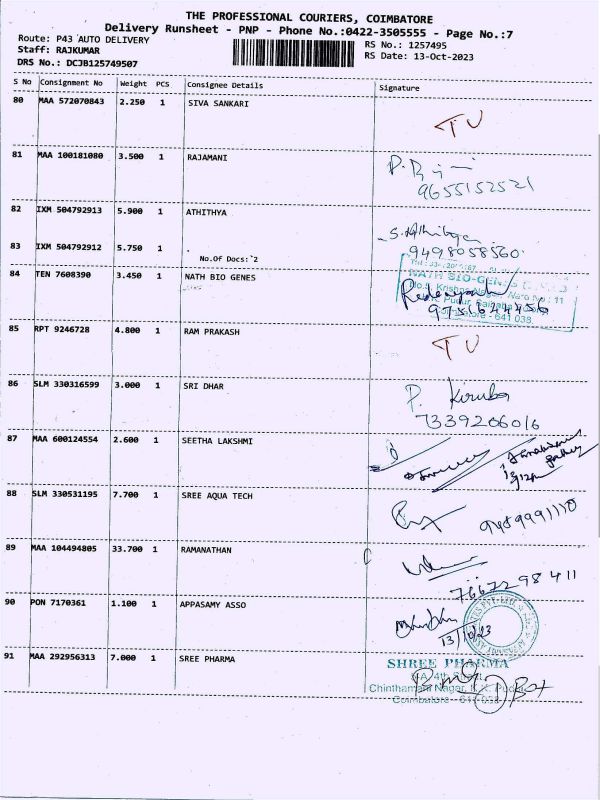 THE PROFESSIONAL COURIERS, COIMBATORE
Delivery Runsheet - PNP - Phone No.:0422-3505555 - Page No.:7
Route: P43 AUTO DELIVERY
RS No.: 1257495
Staff: RAJKUMAR
RS Date: 13-Oct-2023
DRS No.: DCJB125749507
S No Consignment No Weight PCS Consignee Details Signature
80 MAA 572070843 2.250 1 SIVA SANKARI
TU
81 MAA 100181080 3.500 1 RAJAMANI
9655152521
82 IXM 504792913 5.900 1 ATHITHYA
S. Athithya
83 IXM 504792912 5.750 1
9498058560
No.Of Docs: 2
84 TEN 7608390 3.450 1 NATH BIO GENES
NATH BIO-GENES
No.5, Krishna Nagar, Ward No : 11
Pudur,
9751644456
Coimbatore - 641 038
85 RPT 9246728 4.800 1 RAM PRAKASH
TU
86 SLM 330316599 3.000 1 SRI DHAR
P. Kiruba
7339206016
87 MAA 600124554 2.600 1 SEETHA LAKSHMI
88 SLM 330531195 7.700 1 SREE AQUA TECH
9489991110
89 MAA 104494805 33.700 1 RAMANATHAN
7667298411
90 PON 7170361 1.100 1 APPASAMY ASSO
13/10/23
91 MAA 292956313 7.000 1 SREE PHARMA
SHREE PHARMA
4th Street
Chinthamani Nagar, K.K. Pudur
Coimbatore - 641 038
① Box